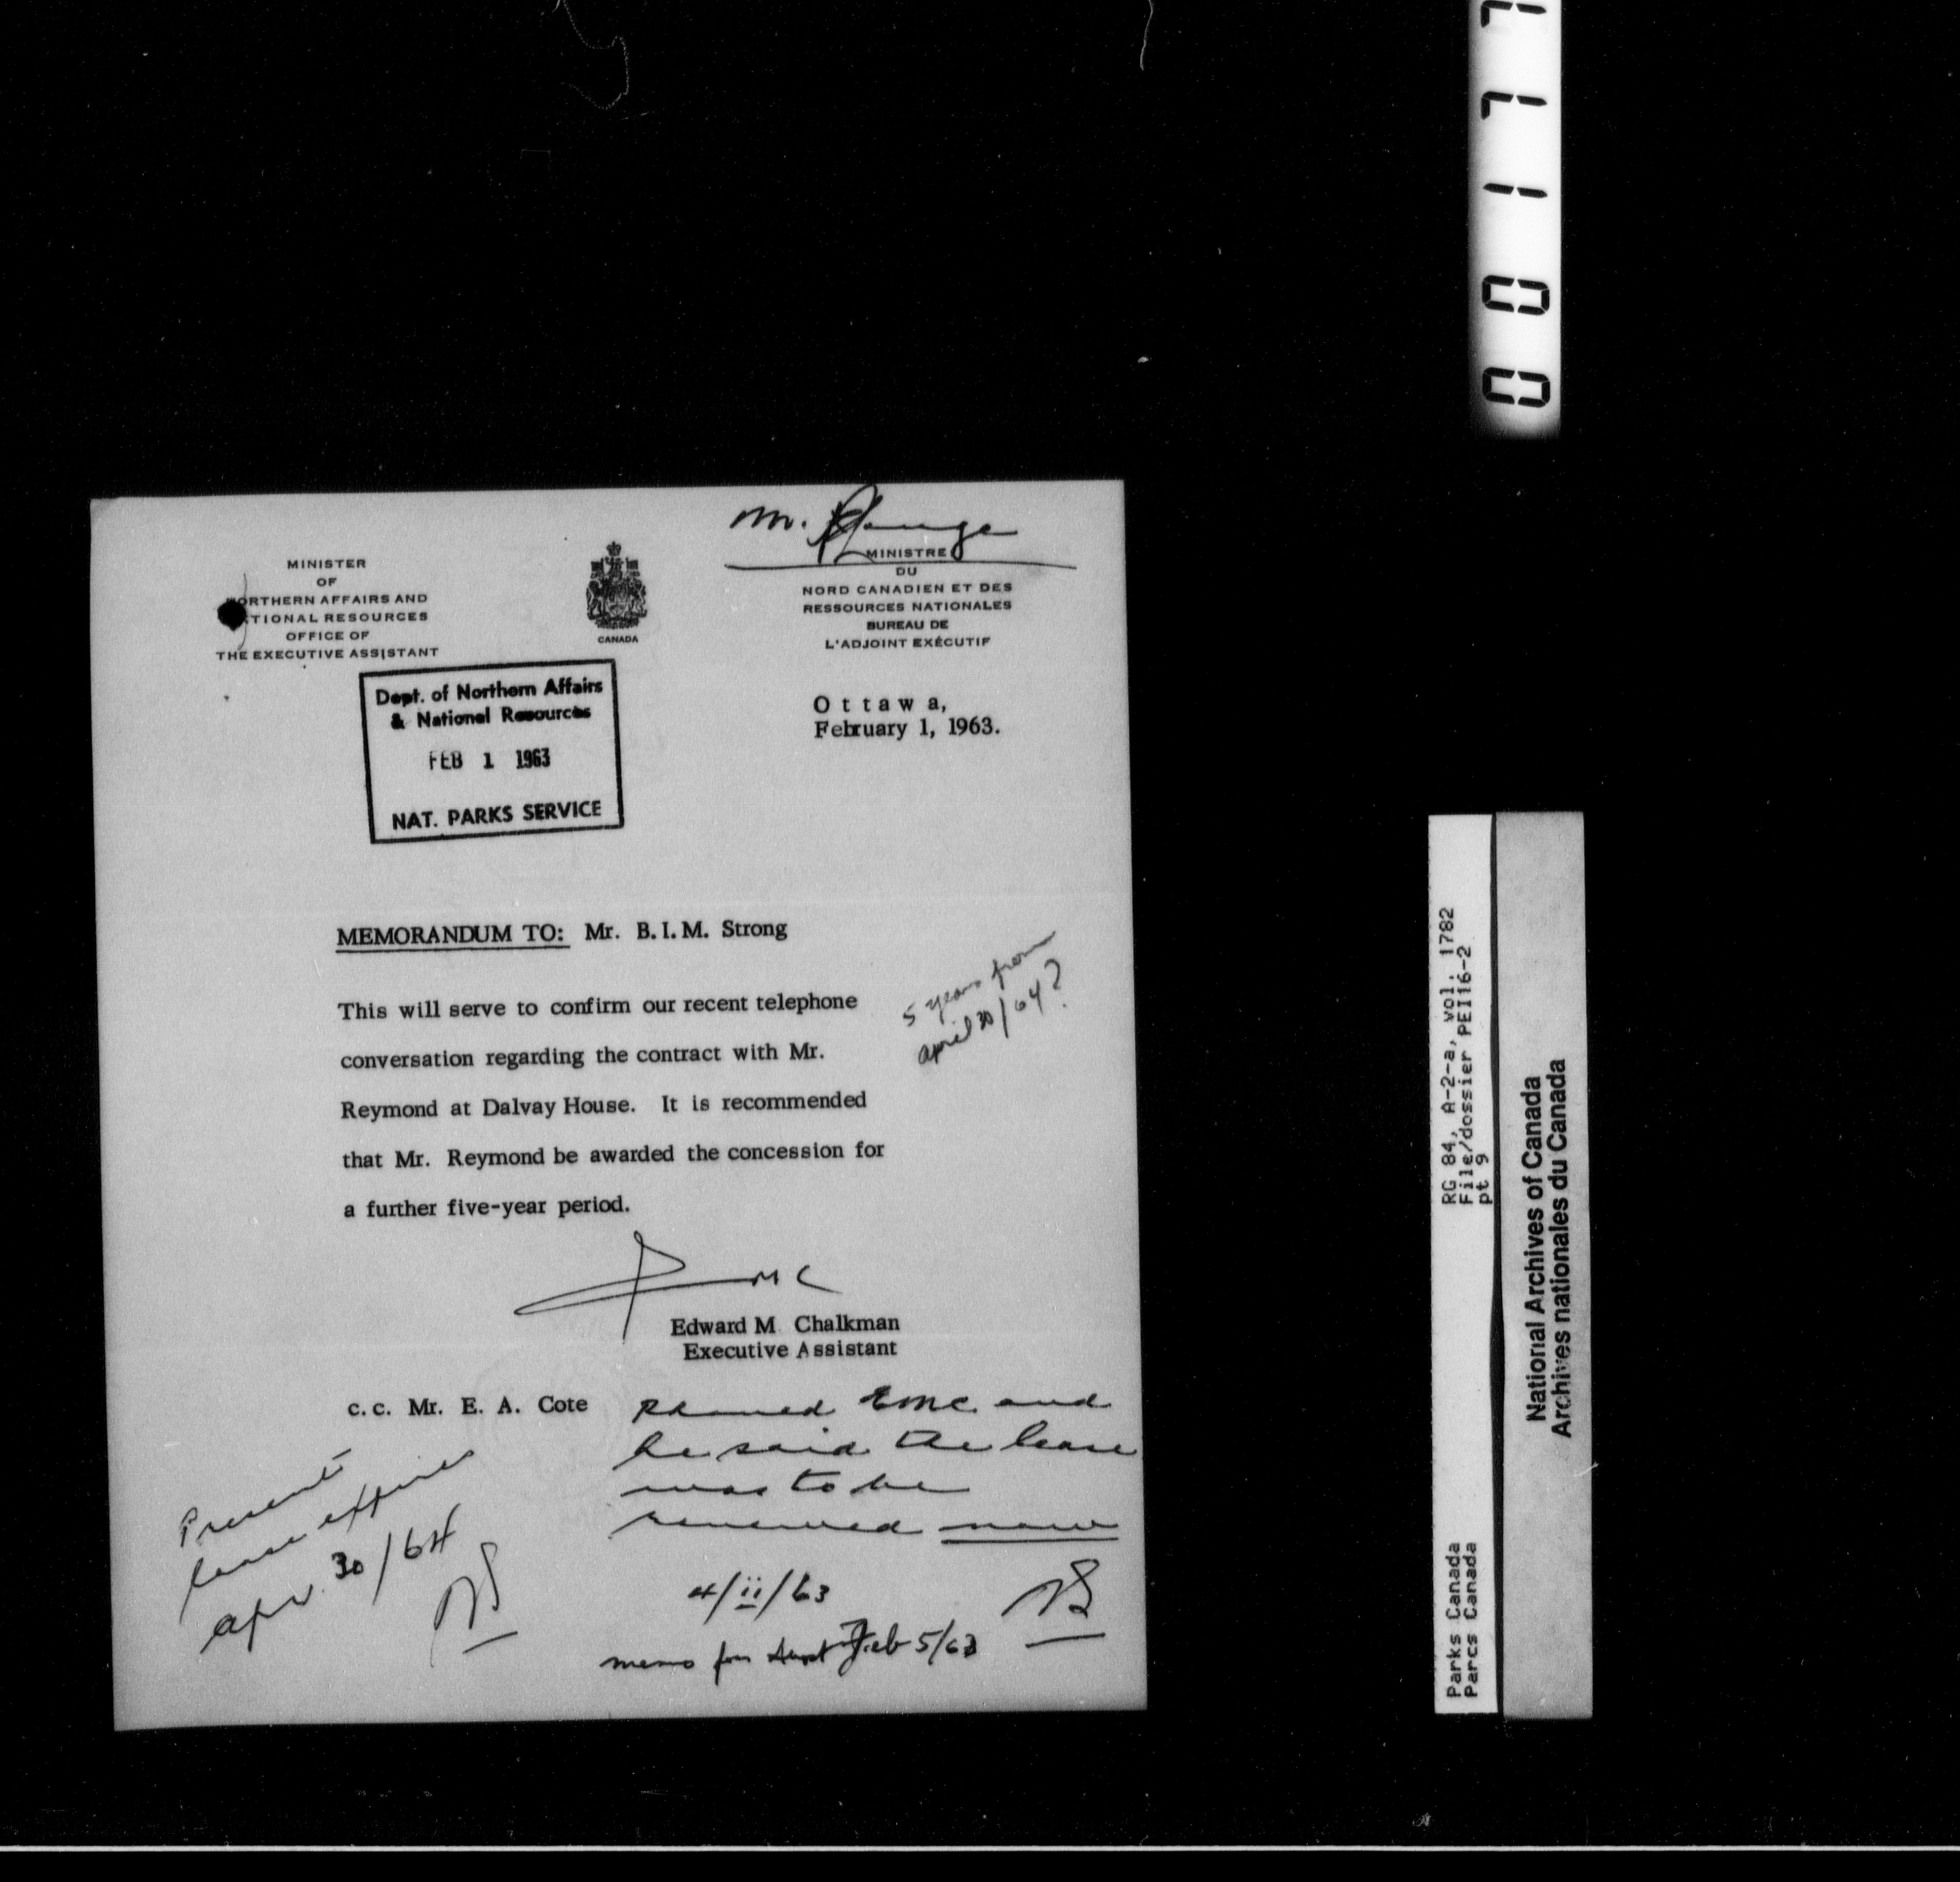 00177
Mr.
MINISTER
OF
NORTHERN AFFAIRS AND
NATIONAL RESOURCES
OFFICE OF
THE EXECUTIVE ASSISTANT
CANADA
MINISTRE
DU
NORD CANADIEN ET DES
RESSOURCES NATIONALES
BUREAU DE
L'ADJOINT EXÉCUTIF
Dept. of Northern Affairs
& National Resources
FEB 1 1963
NAT. PARKS SERVICE
Ottawa,
February 1, 1963.
MEMORANDUM TO: Mr. B.I.M. Strong
5 years from
april 30/64?
This will serve to confirm our recent telephone
conversation regarding the contract with Mr.
Reymond at Dalvay House. It is recommended
that Mr. Reymond be awarded the concession for
a further five-year period.
EMC
Edward M. Chalkman
Executive Assistant
c.c. Mr. E. A. Cote
Phoned EMC and
he said the lease
was to be
renewed now
4/ii/63
memo for Feb 5/63
Present
lease expires
apr 30/64
RG 84, A-2-a, vol. 1782
File/dossier PEI16-2
pt 9
Parks Canada
Parcs Canada
National Archives of Canada
Archives nationales du Canada